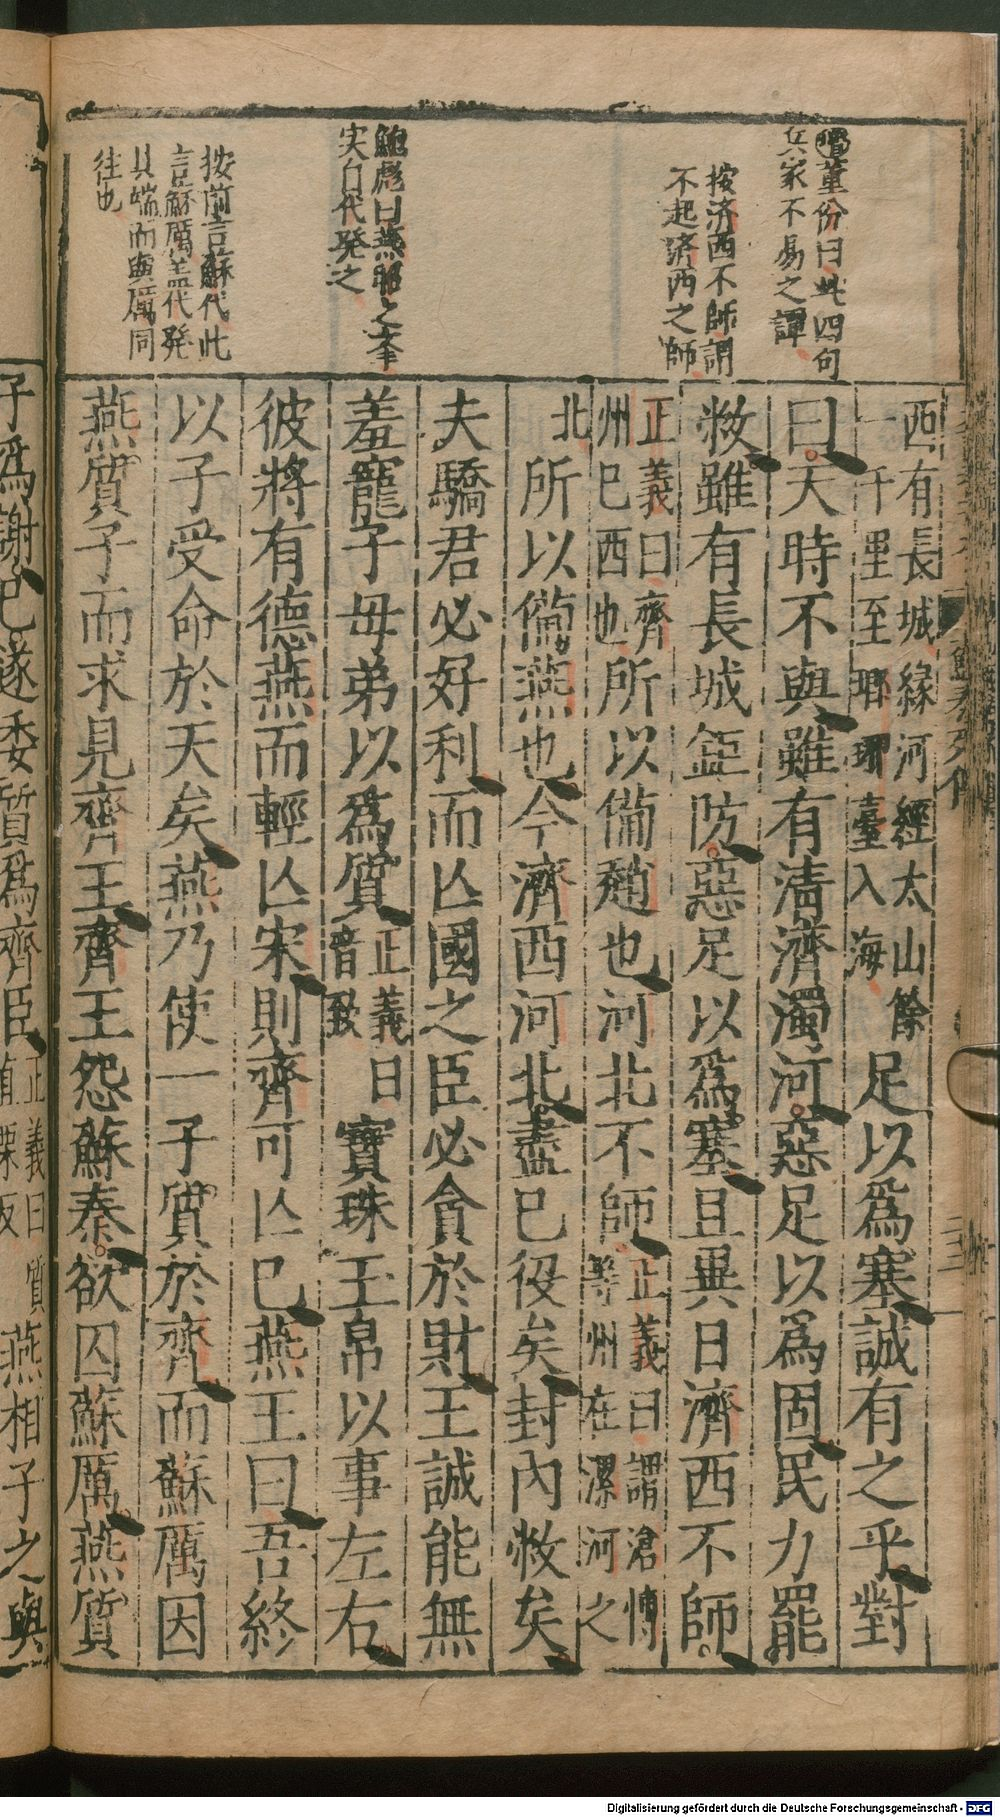 董份曰此四句
兵家不易之譚
按済西不師謂
不起済西之師
鮑彪曰燕昭之挙
実自代発之
按前言蘇代此
言蘇厲盖代発
其端而與厲同
往也
西有長城縁河經太山餘
一千里至瑯琊臺入海
足以爲塞誠有之乎對
曰天時不與雖有淸濟濁河惡足以爲固民力罷
敝雖有長城鉅防惡足以爲塞且異日濟西不師
正義曰齊
州已西也
所以備趙也河北不師
正義曰謂滄愽
等州在漯河之
北
所以備燕也今濟西河北盡已役矣封內敝矣
夫驕君必好利而亾國之臣必貪於財王誠能無
羞寵子母弟以爲質
正義曰
音致
寶珠玉帛以事左右
彼將有德燕而輕亾宋則齊可亾已燕王曰吾終
以子受命於天矣燕乃使一子質於齊而蘇厲因
燕質子而求見齊王齊王怨蘇秦欲囚蘇厲燕質
子爲謝已遂委質爲齊臣
正義曰質
真栗反
燕相子之與
Digitalisierung gefördert durch die Deutsche Forschungsgemeinschaft - DFG